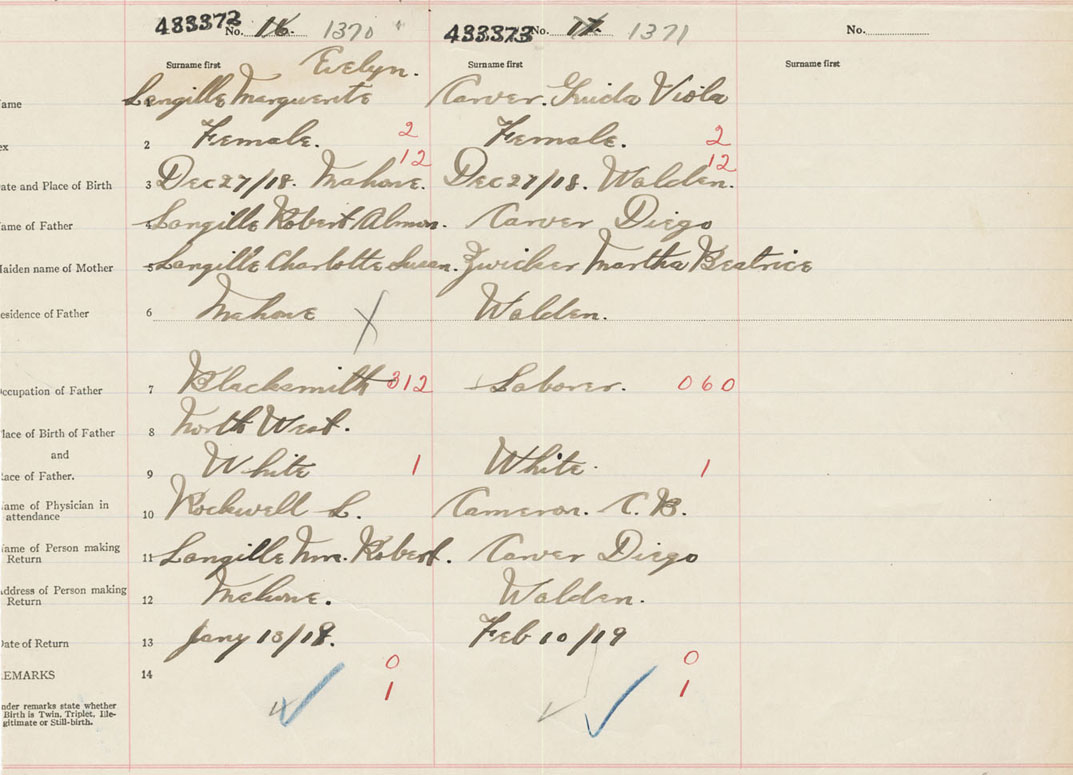 483372 No. 16. 1370 483373 No. 17. 1371 No.
Surname first Evelyn. Surname first Surname first
ame 1 Langille Marguerite Carver. Viola
ex 2 Female. 2 Female. 2
ate and Place of Birth 3 Dec 27/18. Mahone. 12 Dec 27/18. Walden. 12
ame of Father 4 Langille Robert Almon. Carver Diego
Maiden name of Mother 5 Langille Charlotte Susan. Zwicker Martha Beatrice
esidence of Father 6 Mahone X Walden.
ccupation of Father 7 Blacksmith 312 Laborer. 060
lace of Birth of Father 8 North West.
and
ace of Father. 9 White 1 White. 1
ame of Physician in
attendance 10 Rockwell L. Cameron. C. B.
ame of Person making
Return 11 Langille Mrs. Robert. Carver Diego
ddress of Person making
Return 12 Mahone. Walden.
ate of Return 13 Jany 13/18. Feb 10/19
EMARKS 14 0 1 0 1
nder remarks state whether
Birth is Twin, Triplet, Ille-
gitimate or Still-birth.